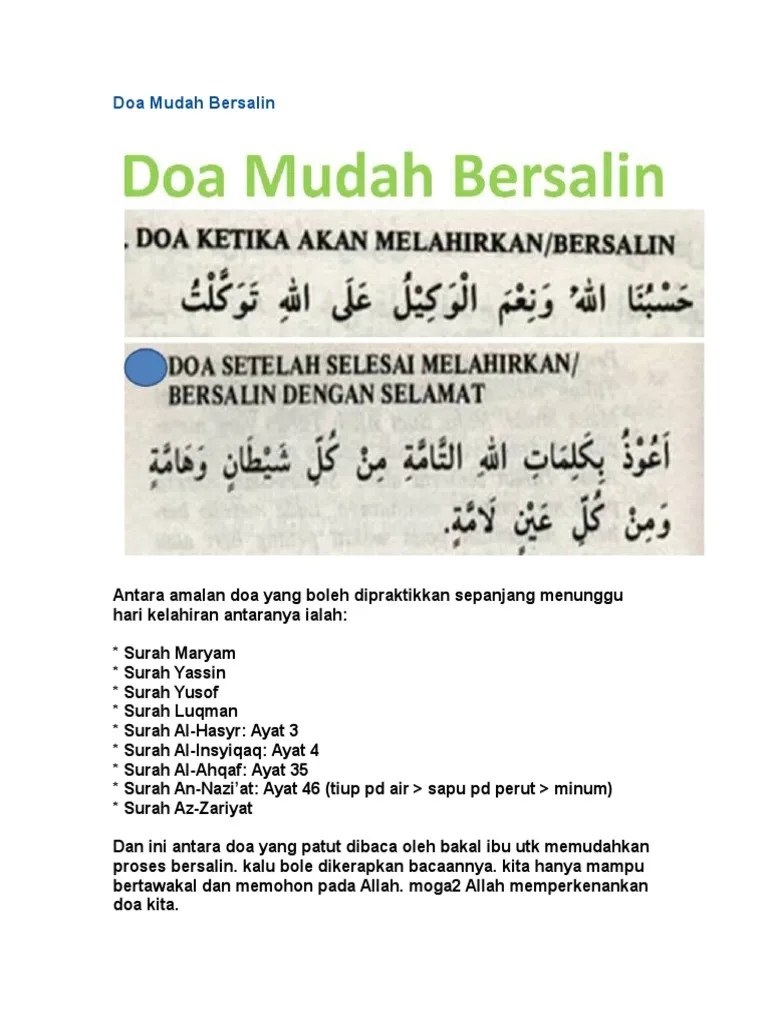 Doa Mudah Bersalin
Doa Mudah Bersalin
. DOA KETIKA AKAN MELAHIRKAN/BERSALIN
حَسْبُنَا اللهُ وَنِعْمَ الْوَكِيْلُ عَلَى اللهِ تَوَكَّلْتُ
DOA SETELAH SELESAI MELAHIRKAN/
BERSALIN DENGAN SELAMAT
اَعُوْذُ بِكَلِمَاتِ اللهِ التَّامَّةِ مِنْ كُلِّ شَيْطَانٍ وَهَامَّةٍ
وَمِنْ كُلِّ عَيْنٍ لَامَّةٍ.
Antara amalan doa yang boleh dipraktikkan sepanjang menunggu
hari kelahiran antaranya ialah:
* Surah Maryam
* Surah Yassin
* Surah Yusof
* Surah Luqman
* Surah Al-Hasyr: Ayat 3
* Surah Al-Insyiqaq: Ayat 4
* Surah Al-Ahqaf: Ayat 35
* Surah An-Nazi’at: Ayat 46 (tiup pd air > sapu pd perut > minum)
* Surah Az-Zariyat
Dan ini antara doa yang patut dibaca oleh bakal ibu utk memudahkan
proses bersalin. kalu bole dikerapkan bacaannya. kita hanya mampu
bertawakal dan memohon pada Allah. moga2 Allah memperkenankan
doa kita.